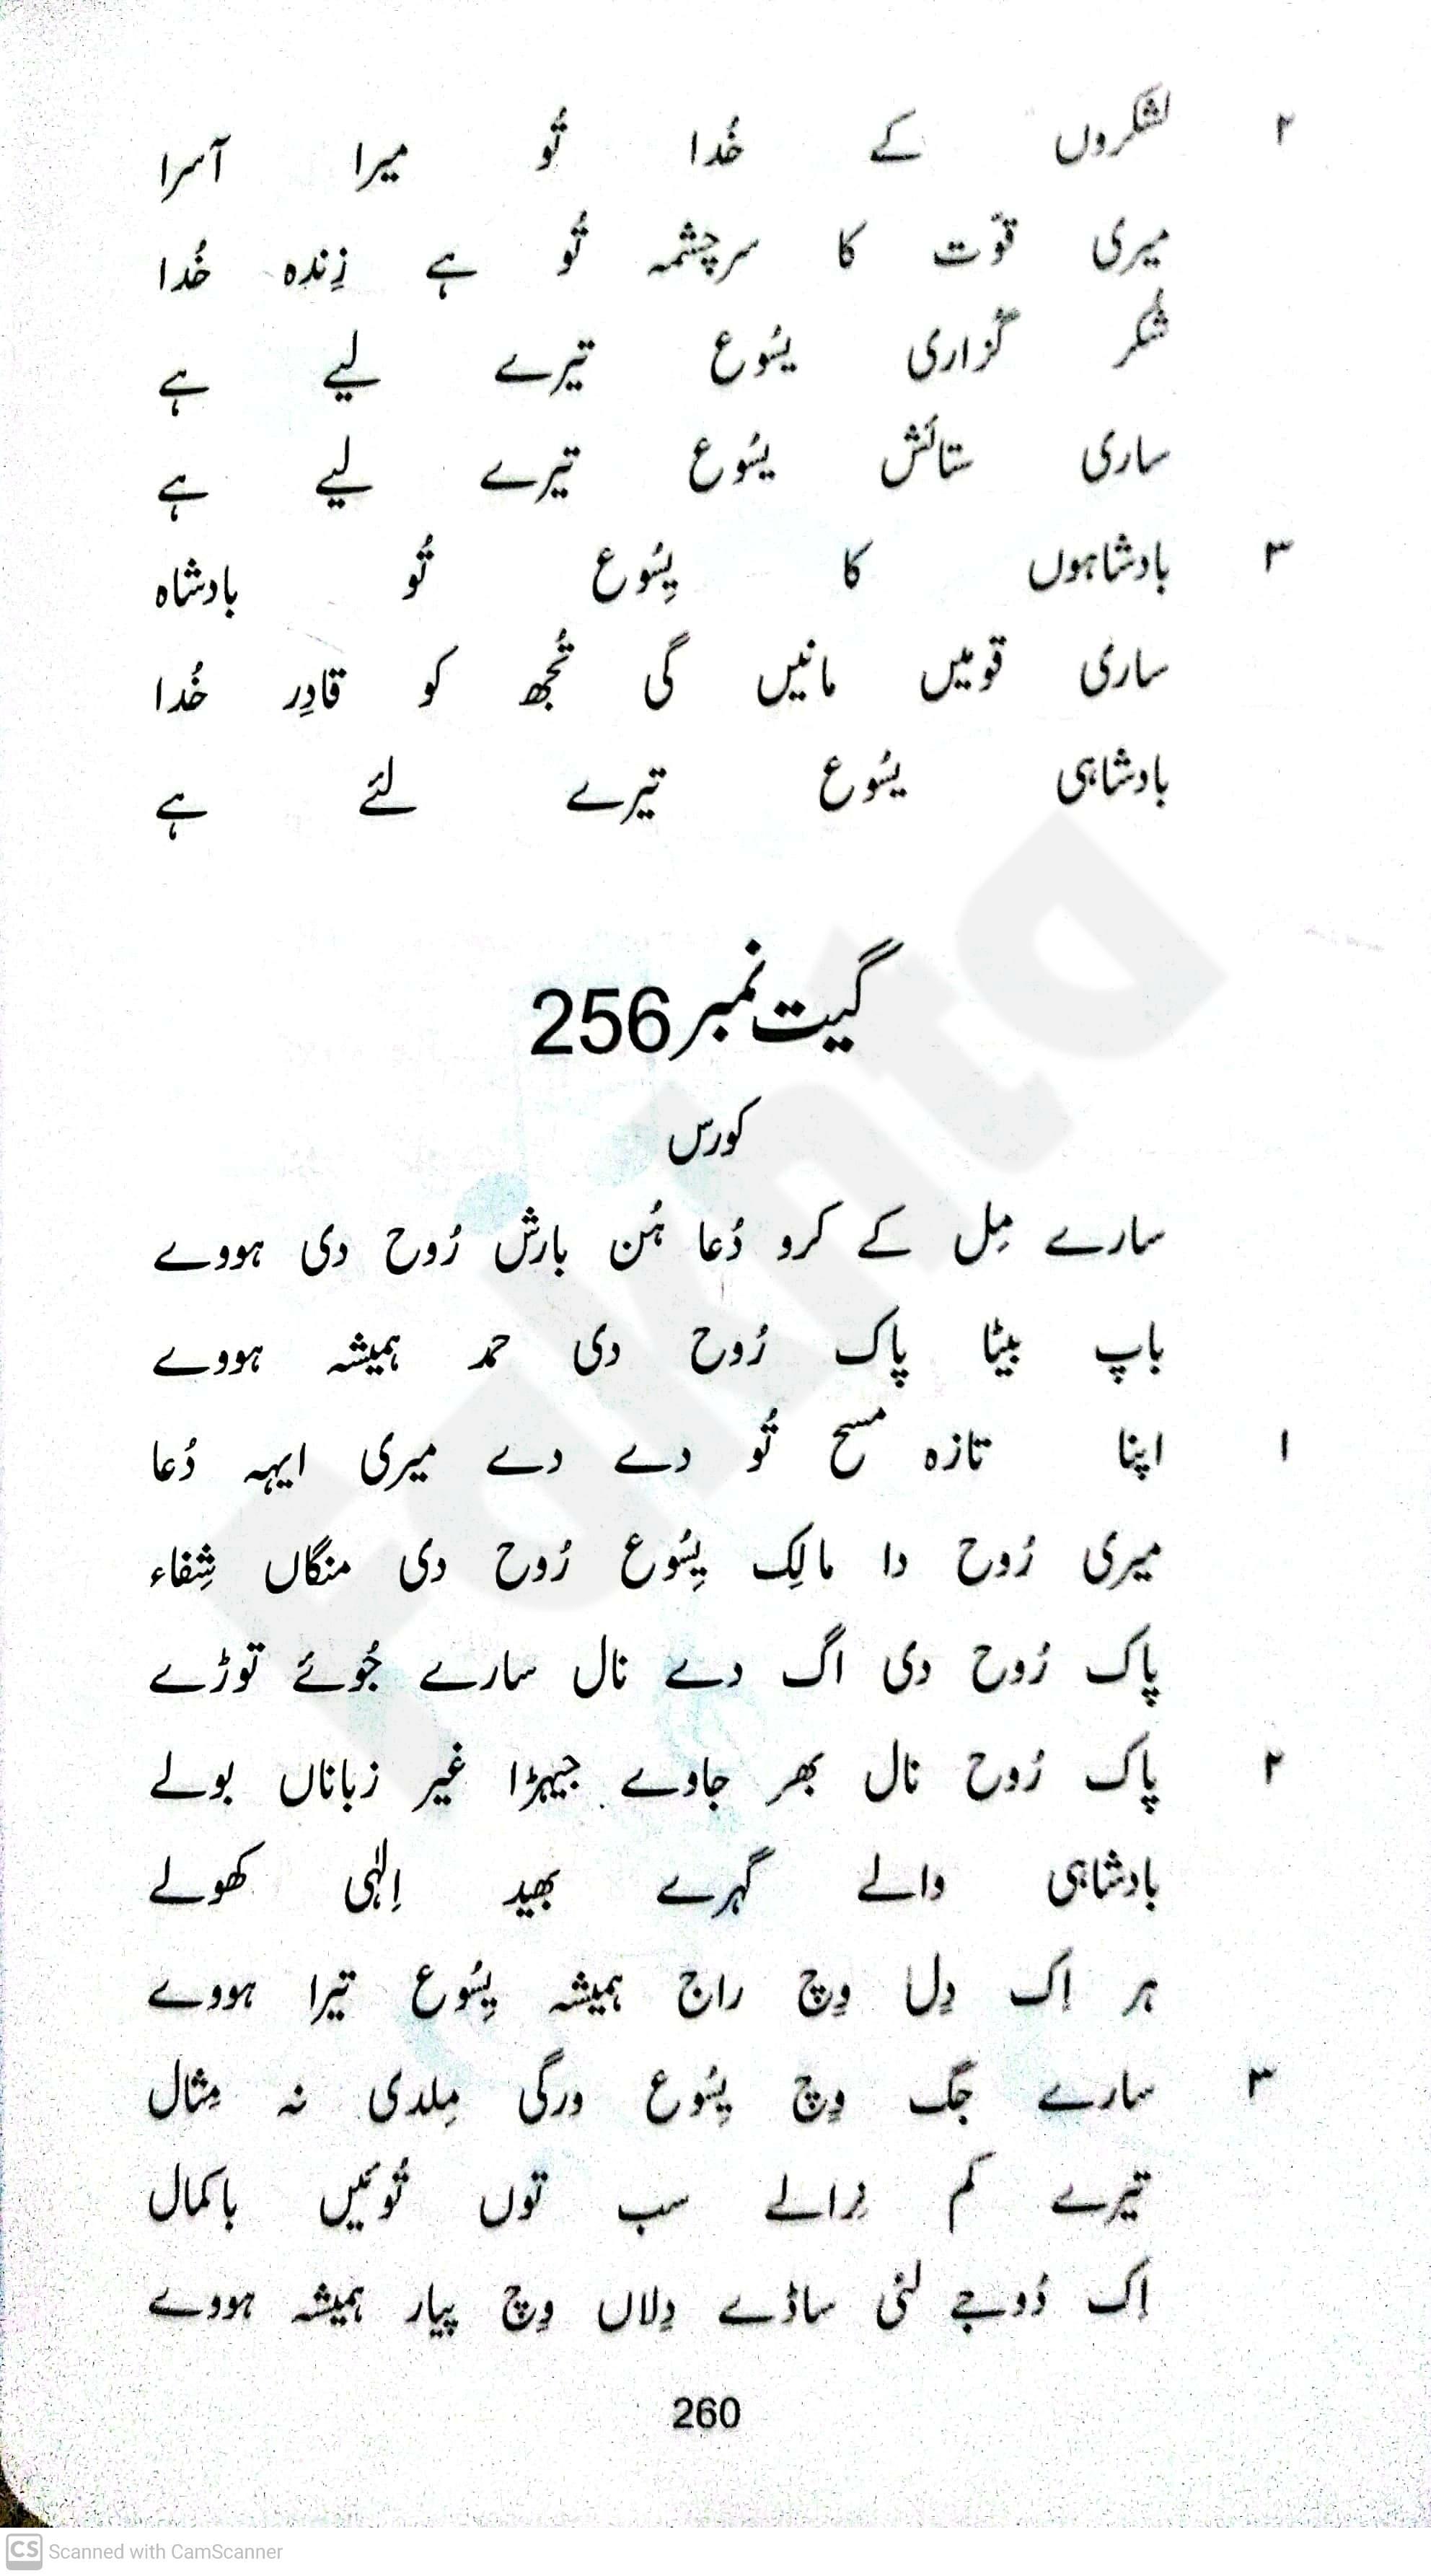 ۲ لشکروں کے خُدا تُو میرا آسرا
میری قوّت کا سرچشمہ تُو ہے زِندہ خُدا
شُکر گُزاری یسُوع تیرے لیے ہے
ساری ستائش یسُوع تیرے لیے ہے
۳ بادشاہوں کا یِسُوع تُو بادشاہ
ساری قومیں مانیں گی تُجھ کو قادِر خُدا
بادشاہی یسُوع تیرے لئے ہے
گیت نمبر 256
کورس
سارے مِل کے کرو دُعا ہُن بارش رُوح دی ہووے
باپ بیٹا پاک رُوح دی حمد ہمیشہ ہووے
۱ اپنا تازہ مسح تُو دے دے میری ایہہ دُعا
میری رُوح دا مالِک یِسُوع رُوح دی منگاں شِفاء
پاک رُوح دی اگ دے نال سارے جُوئے توڑے
۲ پاک رُوح نال بھر جاوے جیہڑا غیر زباناں بولے
بادشاہی والے گہرے بھید اِلٰہی کھولے
ہر اِک دِل وِچ راج ہمیشہ یِسُوع تیرا ہووے
۳ سارے جگ وِچ یِسُوع ورگی مِلدی نہ مِثال
تیرے کم نِرالے سب توں تُوئیں باکمال
اِک دُوجے لئی ساڈے دِلاں وِچ پیار ہمیشہ ہووے
260
Fakhta
CS Scanned with CamScanner